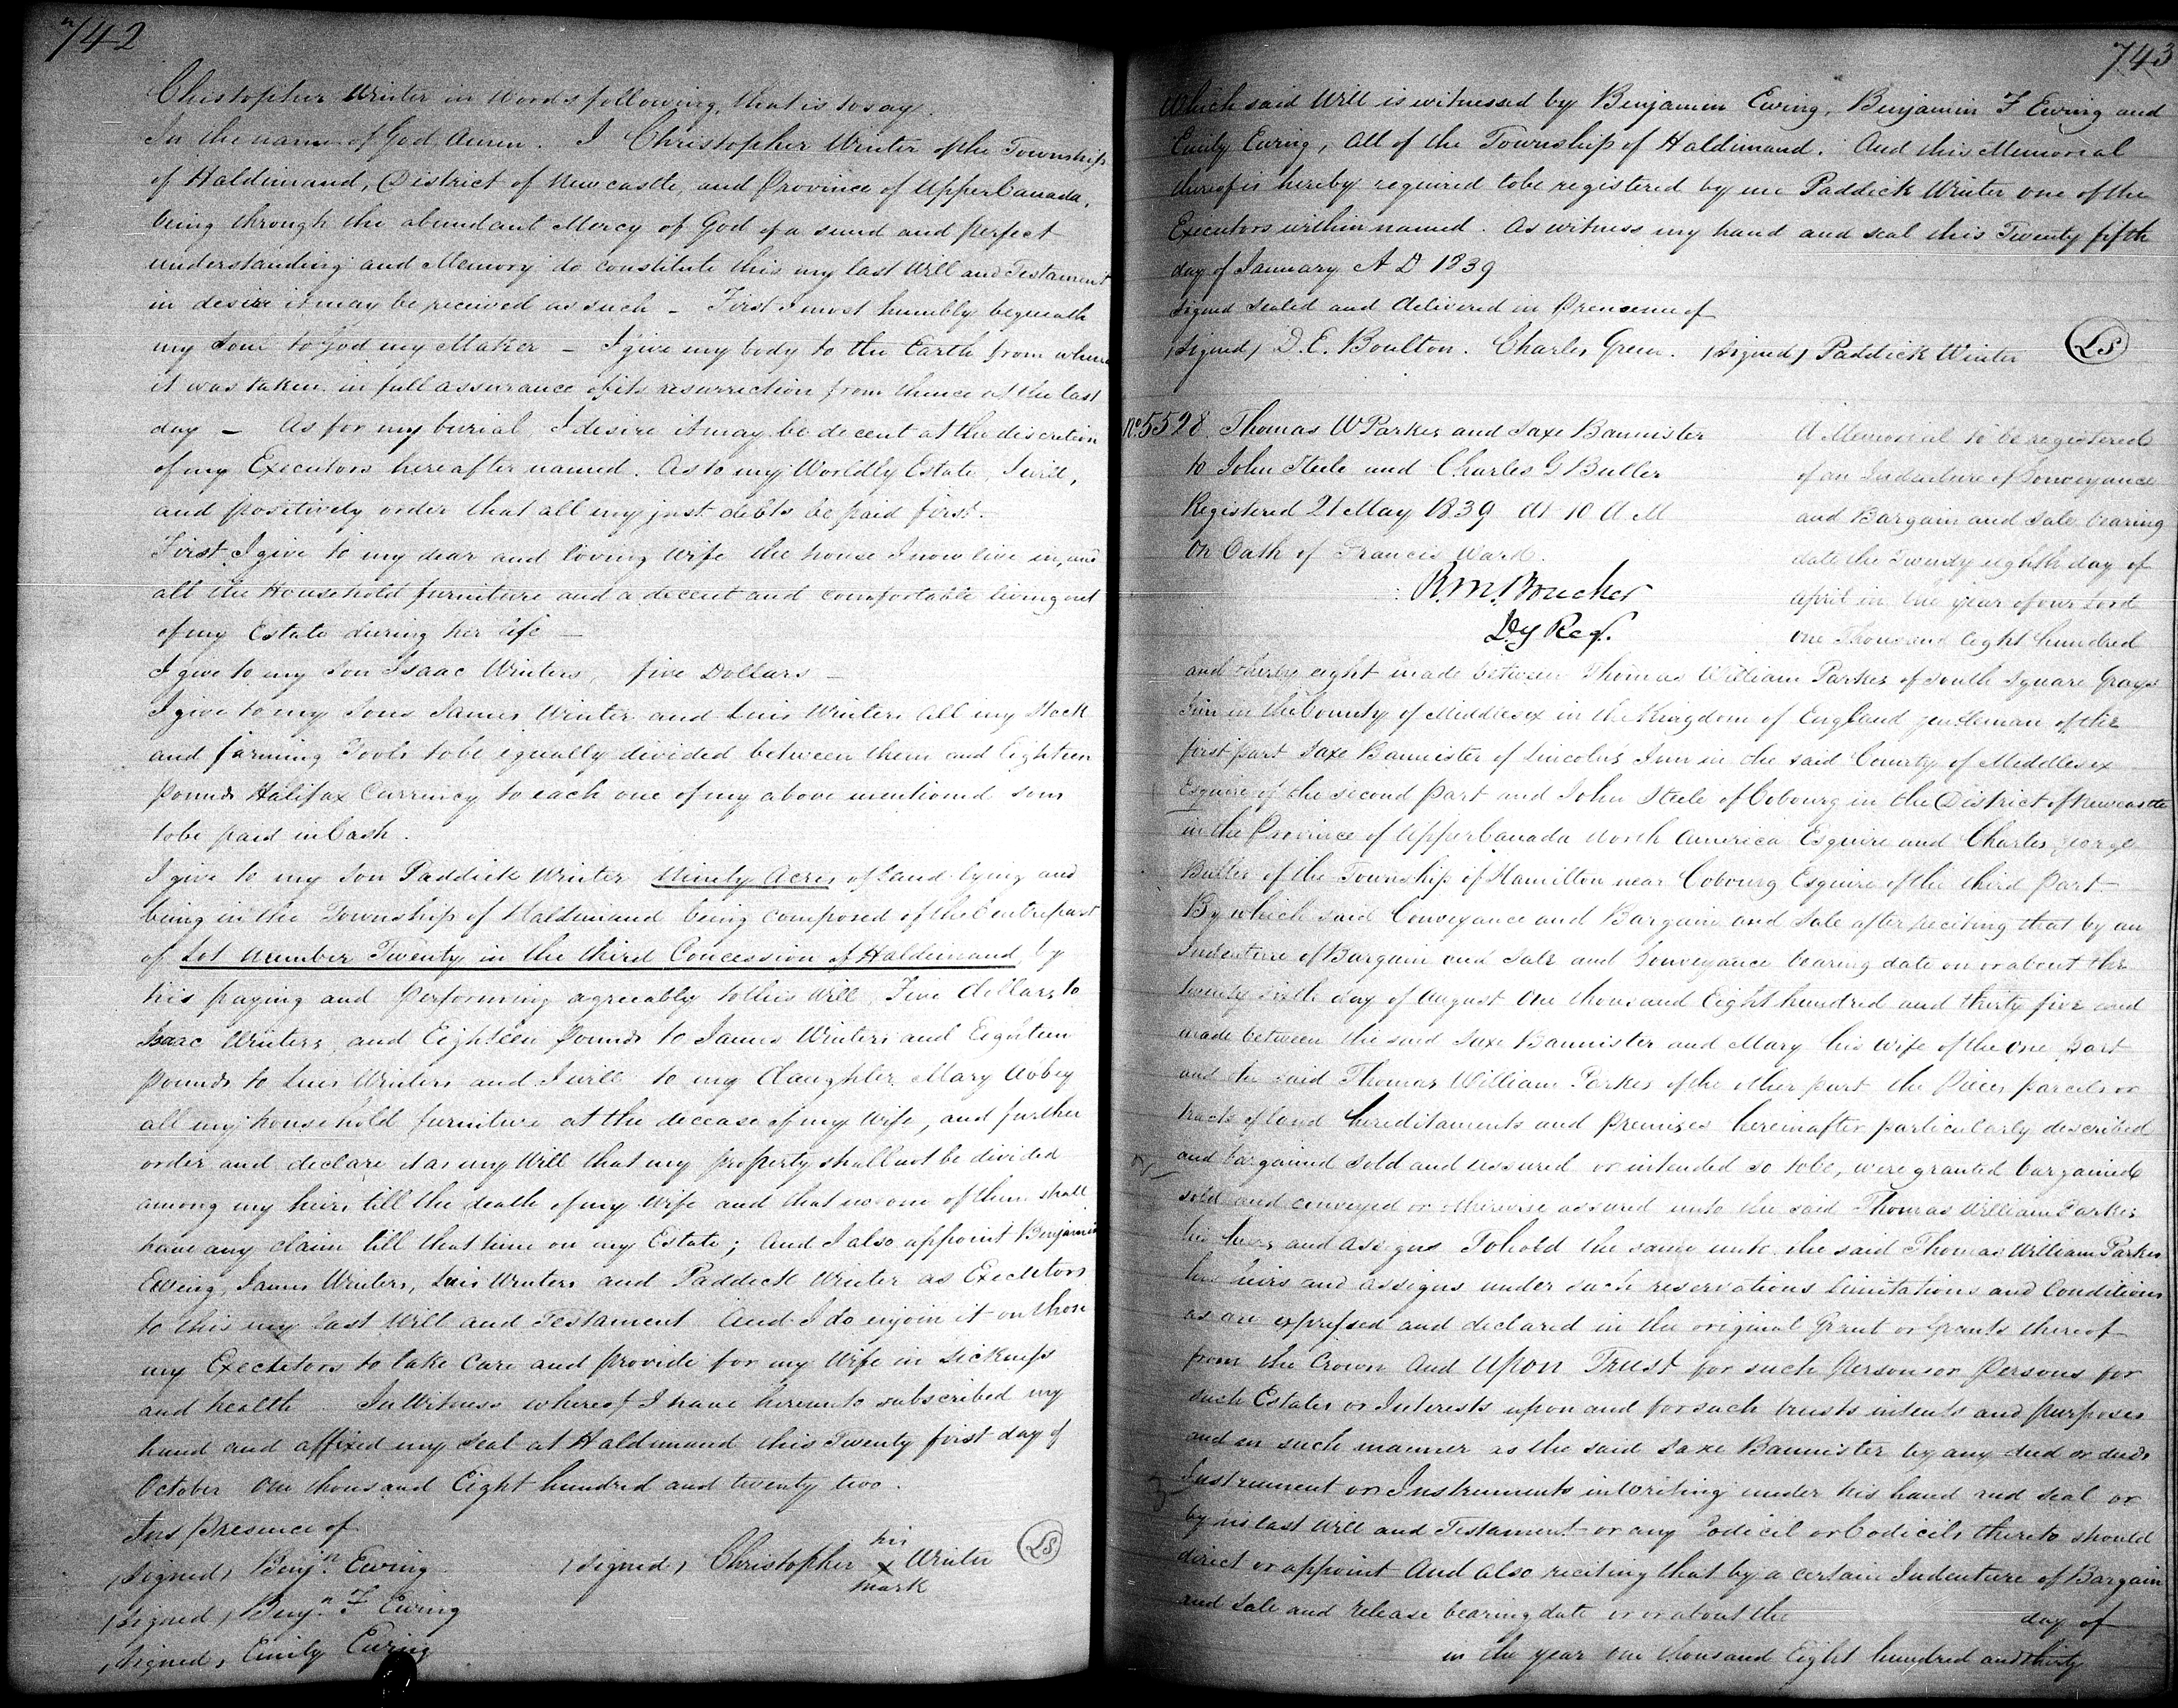 742
Christopher Winter in words following, that is to say.
In the name of God Amen. I Christopher Winter of the Township
of Haldimand, District of Newcastle, and Province of Upper Canada,
being through the abundant Mercy of God of a sound and perfect
understanding and Memory do constitute this my last Will and Testament
in desire it may be received as such – First I most humbly bequeath
my Soul to God my Maker – I give my body to the Earth from whence
it was taken in full assurance of its resurrection from thence at the last
day – As for my burial, I desire it may be decent at the discretion
of my Executors hereafter named. As to my Worldly Estate, I will,
and positively order that all my just debts be paid first.
First I give to my dear and loving wife the house I now live in, and
all the Household furniture and a decent and comfortable living out
of my Estate during her life –
I give to my Son Isaac Winters, five Dollars –
I give to my Sons James Winter and Luis Winters all my Stock
and farming Tools to be equally divided between them and Eighteen
Pounds Halifax Currency to each one of my above mentioned sons
to be paid in Cash.
I give to my Son Paddick Winter Ninety Acres of Land lying and
being in the Township of Haldimand being composed of the Centre part
of Lot Number Twenty in the third Concession of Haldimand, by
his paying and performing agreeably to this Will, Five dollars to
Isaac Winters, and Eighteen Pounds to James Winters and Eighteen
Pounds to Luis Winters and I will to my daughter Mary Abbey
all my household furniture at the decease of my Wife, and further
order and declare it as my Will that my property shall not be divided
among my heirs till the death of my Wife and that no one of them shall
have any claim till that time on my Estate; And I also appoint Benjamin
Ewing, James Winters, Luis Winters and Paddick Winter as Executors
to this my last Will and Testament And I do enjoin it on those
my Executors to take Care and provide for my Wife in Sickness
and health. In Witness whereof I have hereunto subscribed my
hand and affixed my Seal at Haldimand this Twenty first day of
October One thousand Eight hundred and twenty two.
In presence of
(signed) Benjn. Ewing (signed) Christopher his x mark Winter LS
(signed) Benjn. F Ewing
(signed) Emily Ewing
743
Which said Will is witnessed by Benjamin Ewing, Benjamin F Ewing and
Emily Ewing, all of the Township of Haldimand. And this Memorial
thereof is hereby required to be registered by me Paddick Winter one of the
Executors within named. As witness my hand and seal this Twenty fifth
day of January A D 1839
Signed Sealed and delivered in Prescence of
(signed) D. E. Boulton. Charles Green. (signed) Paddick Winter LS
No 5528. Thomas W Parker and Saxe Bannister
to John Steele and Charles G Butler
Registered 21 May 1839 At 10 A M
On Oath of Francis Ward.
R. M. Boucher
Dy Reg.
A Memorial to be registered
of an Indenture of Conveyance
and Bargain and Sale bearing
date the Twenty eighth day of
April in the year of our Lord
one Thousand Eight hundred
and thirty eight made between Thomas William Parker of South Square Grays
Inn in the County of Middlesex in the Kingdom of England gentleman of the
first part Saxe Bannister of Lincolns Inn in the said County of Middlesex
Esquire of the second part and John Steele of Cobourg in the District of Newcastle
in the Province of Upper Canada North America Esquire and Charles George
Butler of the Township of Hamilton near Cobourg Esquire of the third Part –
By which said Conveyance and Bargain and Sale after reciting that by an
Indenture of Bargain and Sale and Conveyance bearing date on or about the
twenty sixth day of August One thousand Eight hundred and thirty five and
made between the said Saxe Bannister and Mary his wife of the one part
and the said Thomas William Parker of the other part the Pieces parcels or
tracts of land hereditaments and Premises hereinafter particularly described
and bargained sold and assured or intended so to be, were granted bargained
sold and conveyed or otherwise assured unto the said Thomas William Parker
his heirs and assigns To hold the same unto the said Thomas William Parker
his heirs and assigns under such reservations limitations and Conditions
as are expressed and declared in the original Grant or Grants thereof
from the Crown And Upon Trust for such Person or Persons for
such Estates or Interests upon and for such trusts intents and purposes
and in such manner as the said Saxe Bannister by any deed or deeds
Instrument or Instruments in writing under his hand and seal or
by his last Will and Testament or any Codicil or Codicils thereto should
direct or appoint And also reciting that by a certain Indenture of Bargain
and Sale and release bearing date on or about the day of
in the year One thousand Eight hundred and thirty